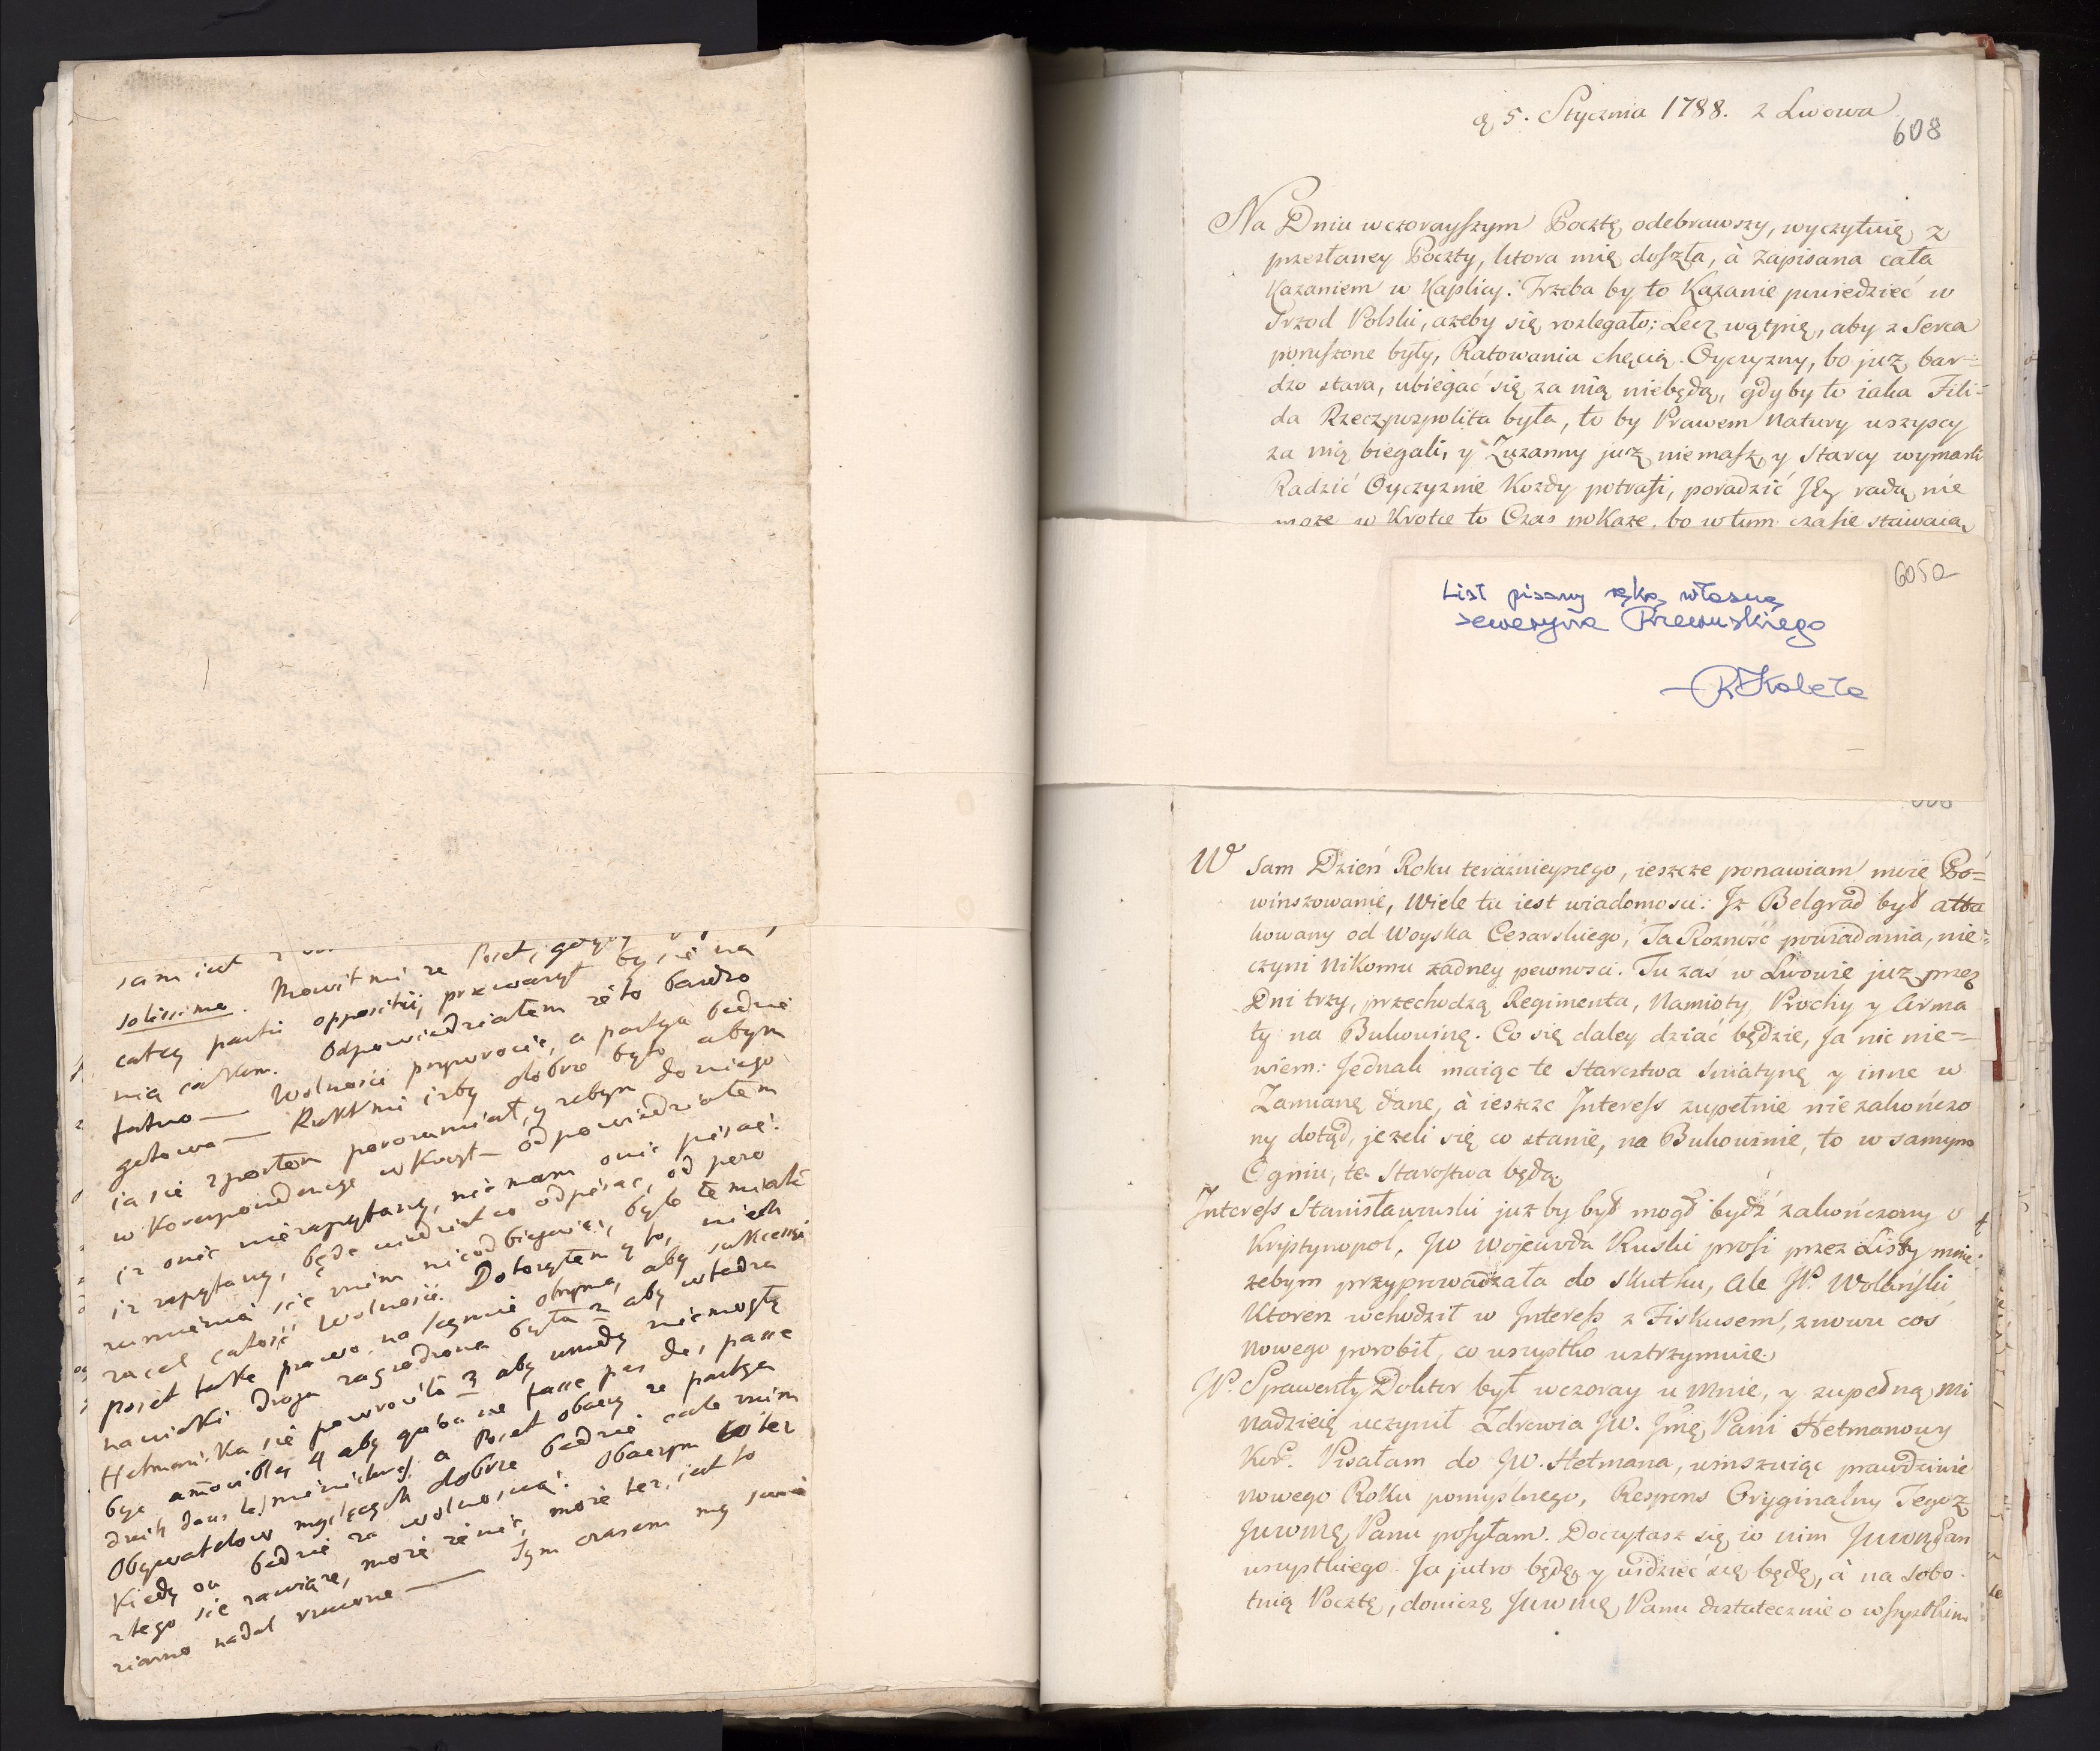 sam iest
solissime. Mowił mi ze Poset, gdyby
całey partii oppositii, przewazył by sie na
nią całkem. Odpowiedziałem ze to bardzo
łatwo — Wolności przywrocić, a partya będzie
gotowa — Rzekł mi izby dobrze było abym
ia sie zposłem porozumiał, y zebym do niego
w Korespondencyę wkroczył — odpowiedziałem
iz onic niezapytany, nie mam onic pisać:
iz zapytany, będę wiedział co odpisać, od poro
zumienia się znim nieodbiegaiąc, byle te miało
za cel całość Wolności. Dołozyłem y to, niech
poset takie prawo na Seymie otrzyma, aby sukcessyi
na wieki droga zagrodzona była 2 aby władza
Hetmańska się powrociła 3 aby urzędy nie mogły
być amovibles 4 aby gaba ne fasse pas de, passe
droits dans le ministere, a Poset obaczy ze partya
Obywatelow myslących dobrze będzie cale znim
Kiedy on będzie za wolnoscią. Obaczym co tez
ztego sie zawiąze, moze ze nic, moze tez, iest to
ziarno nadal rzucone — Tym czasem my

d. 5. Stycznia 1788. z Lwowa
608
Na Dniu wczorayszym Pocztę odebrawszy, wyczytuię z
przesłaney Poczty, ktora mię doszła, à zapisana cała
Kazaniem w Kaplicy. Trzeba by to Kazanie powiedzieć w
Srzod Polski, azeby się rozlegało; Lecz wątpię, aby z Serca
poruszone były, Ratowania chęcią Oyczyzny, bo juz bar=
dzo stara, ubiegać się za nią niebędą, gdy by to iaka Fili=
da Rzeczpospolita była, to by Prawem Natury wszyscy
za nią biegali, y Zuzanny juz niemasz, y Starcy wymarli
Radzić Oyczyznie Kozdy potrafi, poradzić Jey radą nie
moze w Krotce to Czas pokaze, bo w tym czasie stawaią
605a
List pisany ręką własną
Seweryna Rzewuskiego
R Kaleta
W sam Dzień Roku teraznieyszego, ieszcze ponawiam moie Po=
winszowanie, Wiele tu iest wiadomosci: Jz Belgrad był atta
kowany od Woyska Cesarskiego, Ta Rozność powiadania, nie=
czyni Nikomu zadney pewnosci. Tu zaś w Lwowie juz przez
Dni trzy, przechodzą Regimenta, Namioty, Prochy y Arma
ty na Bukowinę. Co się daley dziać będzie, Ja nic nie=
wiem: Jednak maiąc te Starostwa Sniatynę y inne w
Zamianę dane, à ieszcze Interess zupełnie niezakończo
ny dotąd, jezeli się co stanie, na Bukowinie, to w samym
Ogniu, te Starostwa będą.
Interess Stanisławowski juz by był mogł bydź zakończony o
Krystynopol, JW Wojewoda Ruski prosi przez Listy mnie
zebym przyprowadzała do Skutku, ale JP. Wolański
Ktoren wchodził w Interess z Fiskusem, znowu coś
Nowego porobił, co wszystko wstrzymuie.
JP. Sprawenty Doktor był wczoray u Mnie, y zupełną mi
nadzieię uczynił Zdrowia JW. Jmę Pani Hetmanowy
Kor. Pisałam do JW. Hetmana, winszuiąc prawdziwie
nowego Roku pomyslnego, Respons Oryginalny Tegoz
JWWMę Panu posyłam. Doczytasz się w nim JWWMPan
wszystkiego. Ja jutro będę, y widzieć się będę, à na Sobo=
tnią Pocztę, doniozę JWWMę Panu dostatecznie o wszystkim